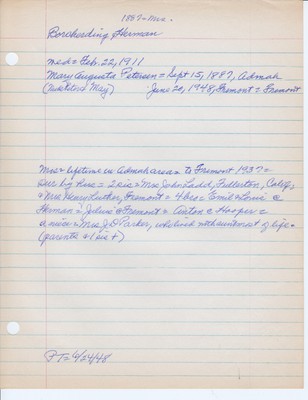 1887 = Mrs.
Borcherding Herman
med = Feb. 22, 1911
Mary Augusta Petersen = Sept 15, 1887, Admah
June 20, 1948, Fremont = Fremont
Mos = lifetime in Admah area = to Fremont 1937 =
Sur by Hus = 2 sis = Mrs John Ladd, Fullerton, Calif,
& Mrs Henry Luther, Fremont = 4 bros = Emil & Louie @
Herman = Julius @ Fremont = Anton @ Hooper =
a niece = Mrs J D Parker, who lived with aunt most of life =
(parents & 1 sis +)
FT = 6/24/48